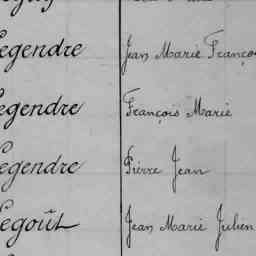 egendre Jean Marie Franço
egendre François Marie
egendre Pierre Jean
egoût Jean Marie Julien